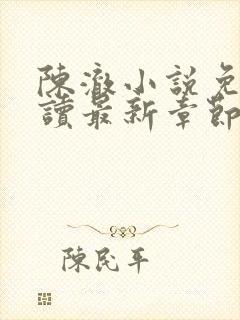 陳澈小說免
讀最新章節
陳民平